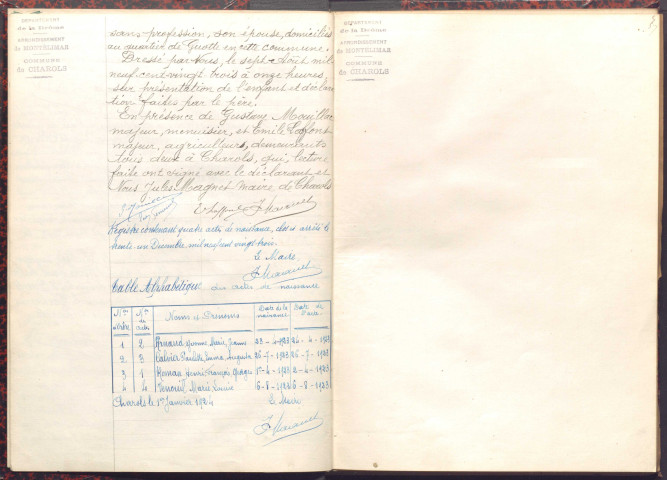 DÉPARTEMENT
de la Drôme
ARRONDISSEMENT
de MONTÉLIMAR
COMMUNE
de CHAROLS
sans profession, son épouse, domiciliés
au quartier de Guotte en cette commune.
Dressé par nous, le sept Août mil
neuf cent vingt trois à onze heures,
sur présentation de l'enfant et déclara
tion faites par le père.
En présence de Gustave
majeur, menuisier, et Emile Laffont
majeur, agriculteur, demeurants
tous deux à Charols, qui, lecture
faite ont signé avec le déclarant et
Nous Jules Magnet Maire de Charols
E Laffont J Magnet
Registre contenant quatre actes de naissance, clos et arrêté le
trente-un Décembre mil neuf cent vingt trois.
Le Maire
J Magnet
Table Alphabétique des actes de naissance
Nos d'ordre Nos des actes Noms et Prénoms Date de la naissance Date de l'acte
1 2 Yvonne Marie Jeanne 23-4-1923 24-4-1923
2 3 Paulette Emma Augusta 26-7-1923 26-7-1923
3 1 Henri François 1-4-1923 2-4-1923
4 4 Marie Lucie 6-8-1923 6-8-1923
Charols le 1er Janvier 1924 Le Maire
J Magnet
DÉPARTEMENT
de la Drôme
ARRONDISSEMENT
de MONTÉLIMAR
COMMUNE
de CHAROLS